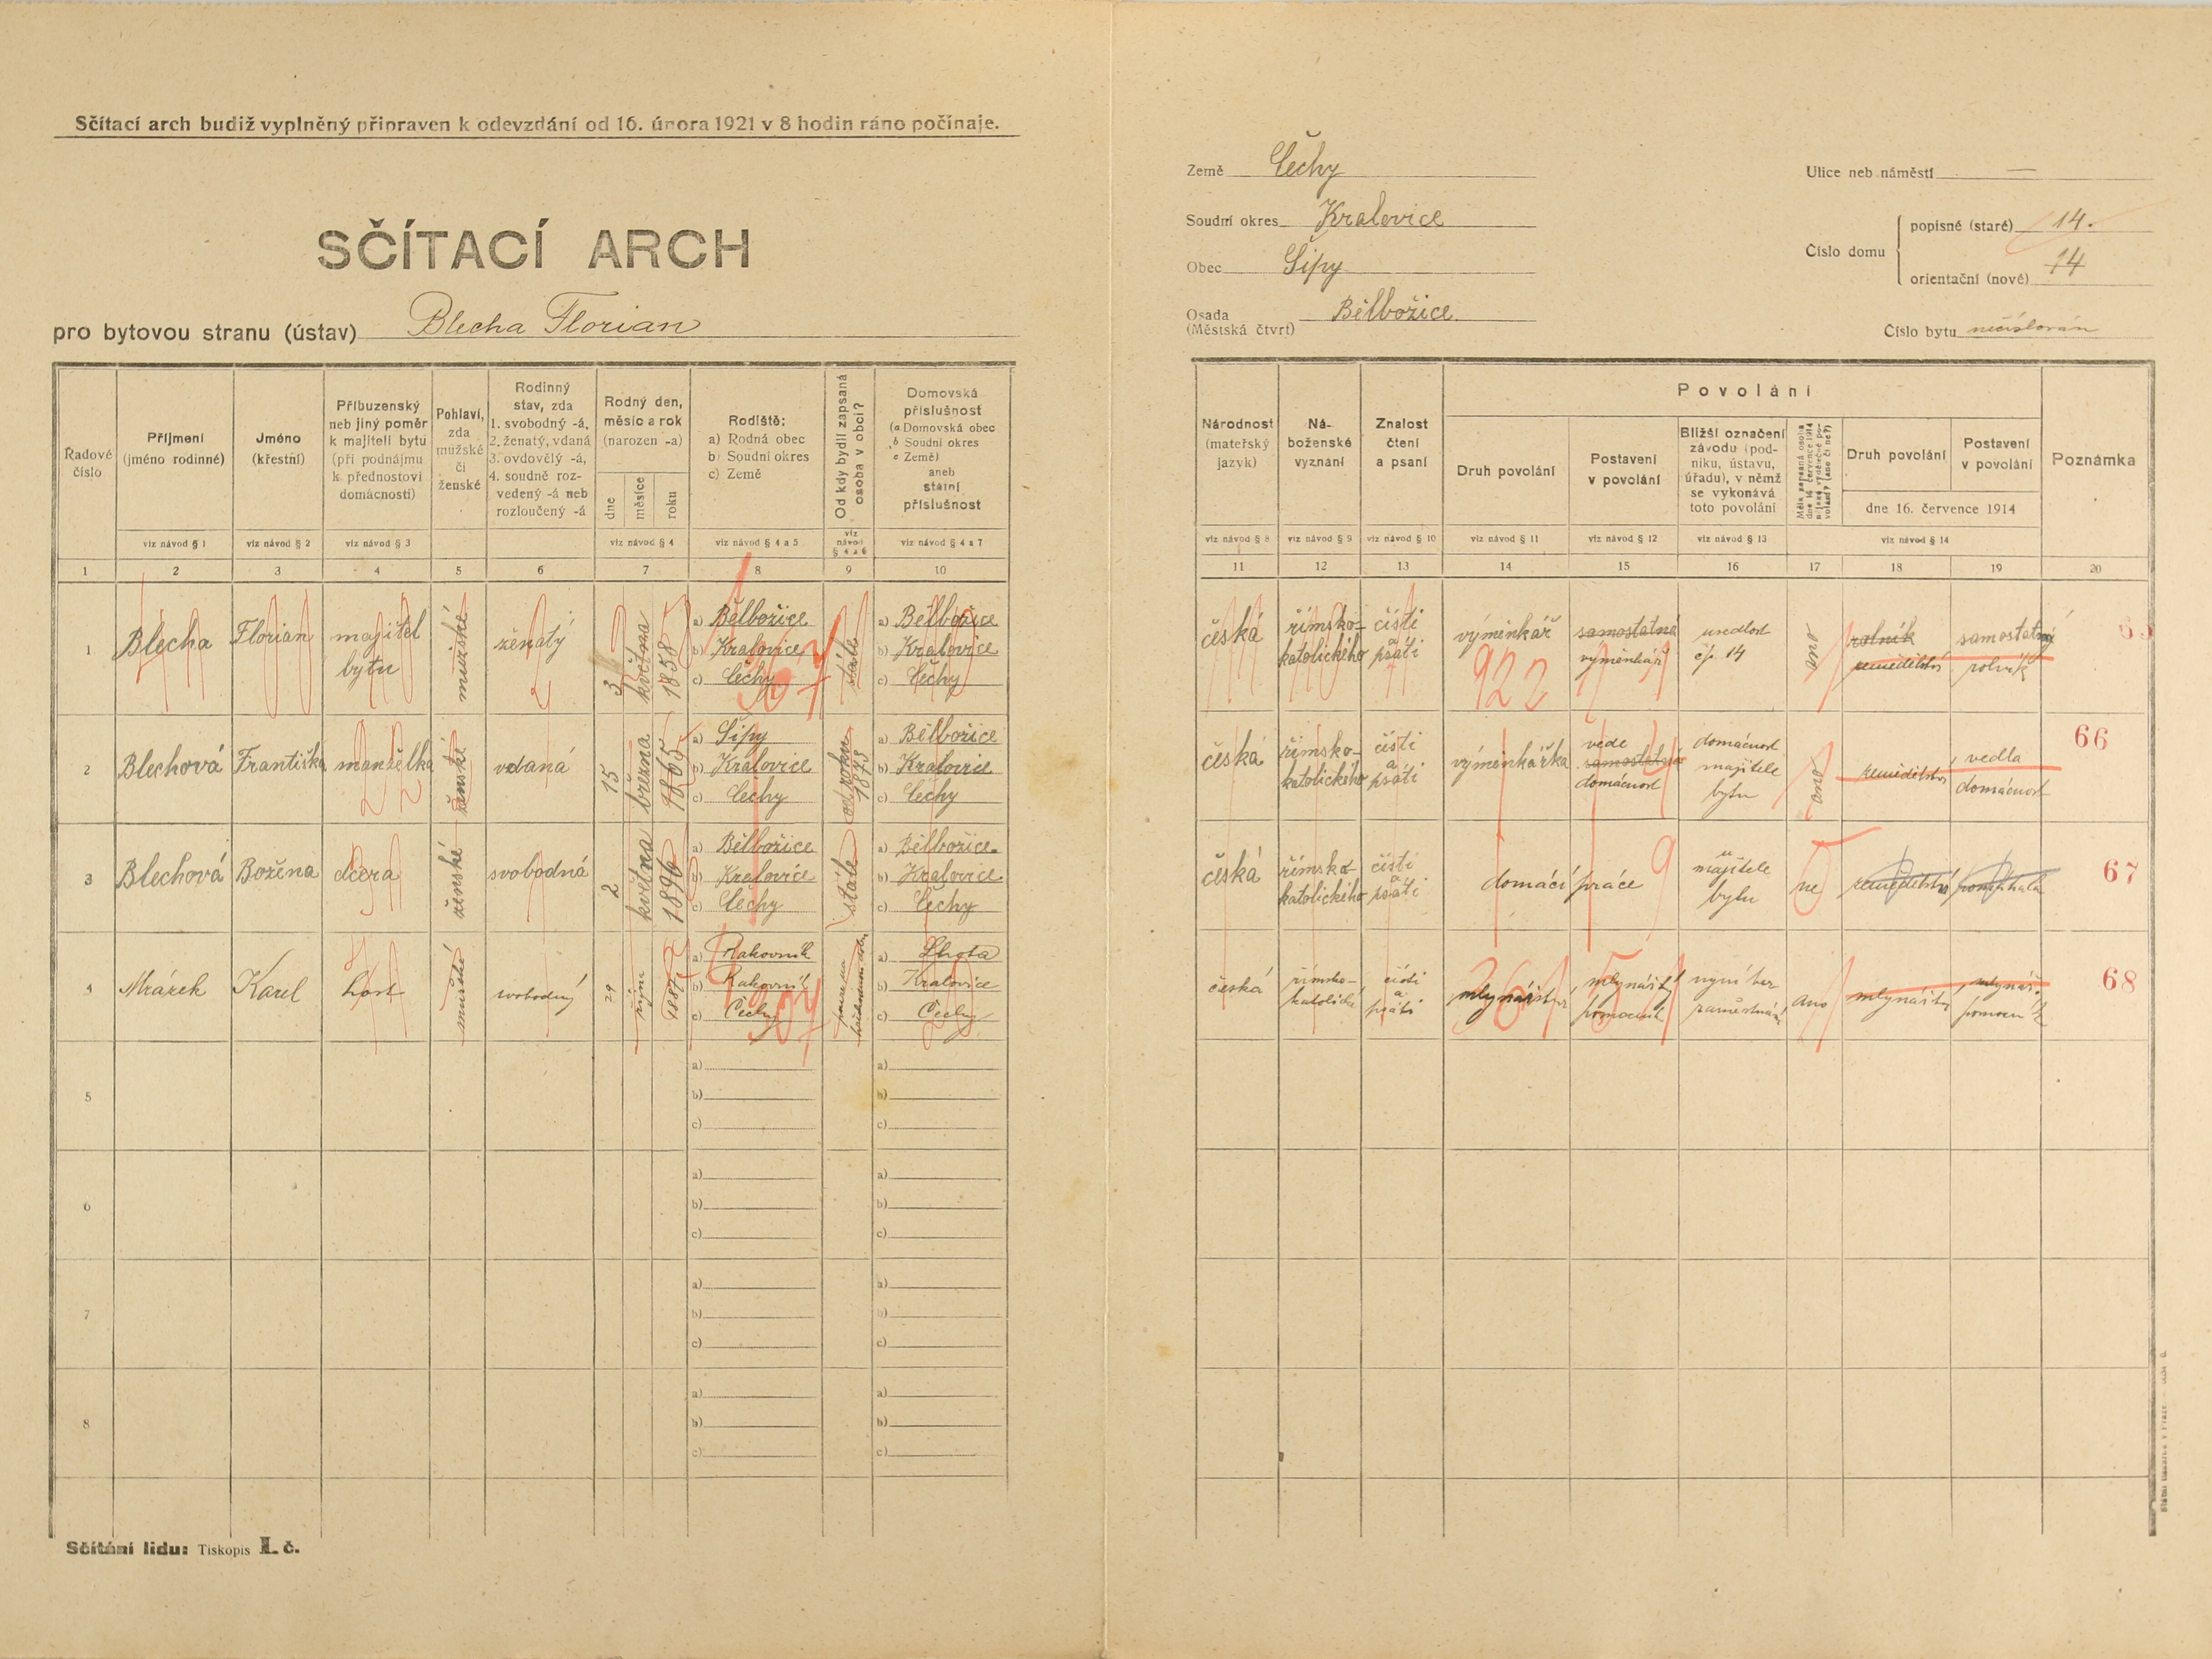 Sčítací arch budiž vyplněný připraven k odevzdání od 16. února 1921 v 8 hodin ráno počínaje.
SČÍTACÍ ARCH
pro bytovou stranu (ústav) Blecha Florian
Země Čechy
Soudní okres Kralovice
Obec Šípy
Osada Bělbožice
(Městská čtvrť)
Ulice neb náměstí —
Číslo domu
popisné (staré) 14.
orientační (nové) 14
Číslo bytu nečíslován
Řadové číslo
Příjmení (jméno rodinné)
viz návod § 1
Jméno (křestní)
viz návod § 2
Příbuzenský neb jiný poměr k majiteli bytu (při podnájmu k přednostovi domácnosti)
viz návod § 3
Pohlaví, zda mužské či ženské
Rodinný stav, zda
1. svobodný -á,
2. ženatý, vdaná
3. ovdovělý -á,
4. soudně rozvedený -á neb rozloučený -á
Rodný den, měsíc a rok (narozen -a)
dne
měsíce
roku
viz návod § 4
Rodiště:
a) Rodná obec
b) Soudní okres
c) Země
viz návod § 4 a 5
Od kdy bydlí zapsaná osoba v obci?
viz návod § 4 a 6
Domovská příslušnost
(a Domovská obec
b Soudní okres
c Země)
aneb státní příslušnost
viz návod § 4 a 7
Národnost (mateřský jazyk)
viz návod § 8
Náboženské vyznání
viz návod § 9
Znalost čtení a psaní
viz návod § 10
Povolání
Druh povolání
viz návod § 11
Postavení v povolání
viz návod § 12
Bližší označení závodu (podniku, ústavu, úřadu), v němž se vykonává toto povolání
viz návod § 13
Druh povolání
Postavení v povolání
dne 16. července 1914
viz návod § 14
Poznámka
1 2 3 4 5 6 7 8 9 10
11 12 13 14 15 16 17 18 19 20
1 Blecha Florian majitel bytu mužské ženatý 3 května 1858
a) Bělbožice
b) Kralovice
c) Čechy
stále
a) Bělbožice
b) Kralovice
c) Čechy
česká římsko-katolického čísti a psáti výminkář samostatná výminkář usedlost čp. 14 ano rolník zemědělství samostatný rolník
922
2 Blechová Františka manželka ženské vdaná 15 března 1865
a) Šípy
b) Kralovice
c) Čechy
od roku
a) Bělbožice
b) Kralovice
c) Čechy
česká římsko-katolického čísti a psáti výminkářka vede domácnost domácnost majitele bytu ano zemědělství vedla domácnost
66
3 Blechová Božena dcera ženské svobodná 2 května 1896
a) Bělbožice
b) Kralovice
c) Čechy
stále
a) Bělbožice
b) Kralovice
c) Čechy
česká římsko-katolického čísti a psáti domácí práce u majitele bytu ne zemědělství pomáhala
67
4 Mrázek Karel host mužské svobodný 29 října
a) Rakovník
b) Rakovník
c) Čechy
a) Lhota
b) Kralovice
c) Čechy
česká římsko-katolické čísti a psáti mlynářství mlynářský pomocník nyní bez zaměstnání ano mlynářství mlynář. pomocník
68
5
a)
b)
c)
a)
b)
c)
6
a)
b)
c)
a)
b)
c)
7
a)
b)
c)
a)
b)
c)
8
a)
b)
c)
a)
b)
c)
Sčítání lidu: Tiskopis I. č.